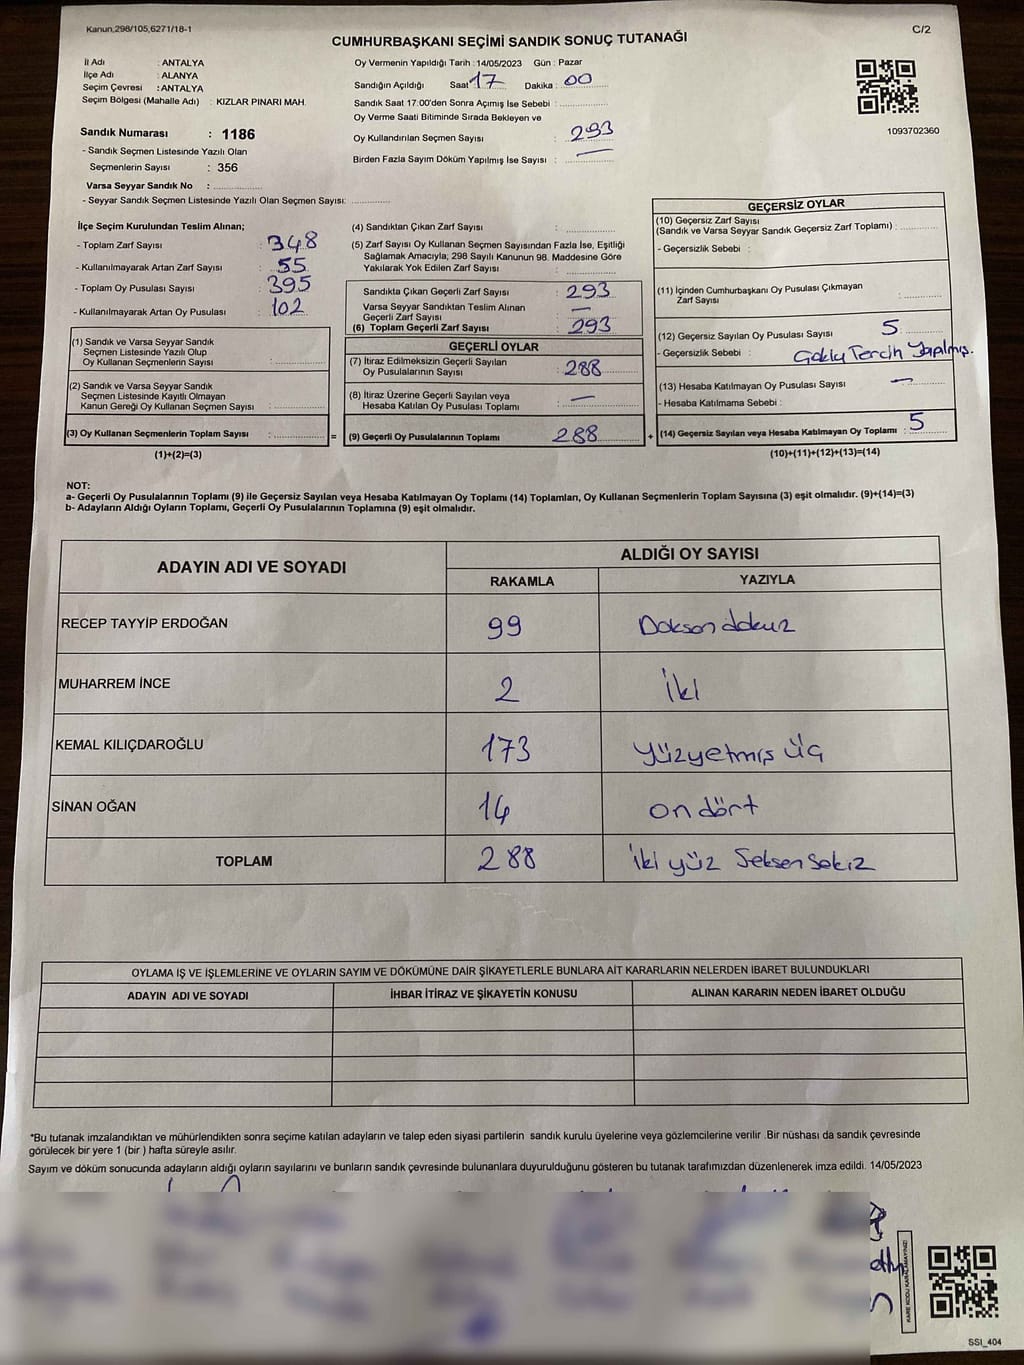 Kanun,298/105,6271/18-1
C/2
CUMHURBAŞKANI SEÇİMİ SANDIK SONUÇ TUTANAĞI
İl Adı : ANTALYA
İlçe Adı : ALANYA
Seçim Çevresi : ANTALYA
Seçim Bölgesi (Mahalle Adı) : KIZLAR PINARI MAH.
Sandık Numarası : 1186
- Sandık Seçmen Listesinde Yazılı Olan
Seçmenlerin Sayısı : 356
Varsa Seyyar Sandık No :
- Seyyar Sandık Seçmen Listesinde Yazılı Olan Seçmen Sayısı:
Oy Vermenin Yapıldığı Tarih : 14/05/2023 Gün : Pazar
Sandığın Açıldığı Saat 17 Dakika : 00
Sandık Saat 17:00'den Sonra Açımış İse Sebebi :
Oy Verme Saati Bitiminde Sırada Bekleyen ve
Oy Kullandırılan Seçmen Sayısı : 293
Birden Fazla Sayım Döküm Yapılmış İse Sayısı : —
1093702360
İlçe Seçim Kurulundan Teslim Alınan;
- Toplam Zarf Sayısı : 348
- Kullanılmayarak Artan Zarf Sayısı : 55
- Toplam Oy Pusulası Sayısı : 395
- Kullanılmayarak Artan Oy Pusulası : 102
(1) Sandık ve Varsa Seyyar Sandık
Seçmen Listesinde Yazılı Olup
Oy Kullanan Seçmenlerin Sayısı :
(2) Sandık ve Varsa Seyyar Sandık
Seçmen Listesinde Kayıtlı Olmayan
Kanun Gereği Oy Kullanan Seçmen Sayısı :
(3) Oy Kullanan Seçmenlerin Toplam Sayısı : =
(1)+(2)=(3)
(4) Sandıktan Çıkan Zarf Sayısı :
(5) Zarf Sayısı Oy Kullanan Seçmen Sayısından Fazla İse, Eşitliği
Sağlamak Amacıyla; 298 Sayılı Kanunun 98. Maddesine Göre
Yakılarak Yok Edilen Zarf Sayısı :
Sandıkta Çıkan Geçerli Zarf Sayısı : 293
Varsa Seyyar Sandıktan Teslim Alınan
Geçerli Zarf Sayısı : —
(6) Toplam Geçerli Zarf Sayısı : 293
GEÇERLİ OYLAR
(7) İtiraz Edilmeksizin Geçerli Sayılan
Oy Pusulalarının Sayısı : 288
(8) İtiraz Üzerine Geçerli Sayılan veya
Hesaba Katılan Oy Pusulası Toplamı : —
(9) Geçerli Oy Pusulalarının Toplamı 288 +
GEÇERSİZ OYLAR
(10) Geçersiz Zarf Sayısı
(Sandık ve Varsa Seyyar Sandık Geçersiz Zarf Toplamı) :
- Geçersizlik Sebebi :
(11) İçinden Cumhurbaşkanı Oy Pusulası Çıkmayan
Zarf Sayısı :
(12) Geçersiz Sayılan Oy Pusulası Sayısı : 5
- Geçersizlik Sebebi : Tercih Yapılmış.
(13) Hesaba Katılmayan Oy Pusulası Sayısı : —
- Hesaba Katılmama Sebebi :
(14) Geçersiz Sayılan veya Hesaba Katılmayan Oy Toplamı : 5
(10)+(11)+(12)+(13)=(14)
NOT:
a- Geçerli Oy Pusulalarının Toplamı (9) ile Geçersiz Sayılan veya Hesaba Katılmayan Oy Toplamı (14) Toplamları, Oy Kullanan Seçmenlerin Toplam Sayısına (3) eşit olmalıdır. (9)+(14)=(3)
b- Adayların Aldığı Oyların Toplamı, Geçerli Oy Pusulalarının Toplamına (9) eşit olmalıdır.
ADAYIN ADI VE SOYADI
ALDIĞI OY SAYISI
RAKAMLA YAZIYLA
RECEP TAYYİP ERDOĞAN 99 Doksan dokuz
MUHARREM İNCE 2 İki
KEMAL KILIÇDAROĞLU 173 Yüzyetmiş üç
SİNAN OĞAN 14 on dört
TOPLAM 288 iki yüz Seksen Sekiz
OYLAMA İŞ VE İŞLEMLERİNE VE OYLARIN SAYIM VE DÖKÜMÜNE DAİR ŞİKAYETLERLE BUNLARA AİT KARARLARIN NELERDEN İBARET BULUNDUKLARI
ADAYIN ADI VE SOYADI İHBAR İTİRAZ VE ŞİKAYETİN KONUSU ALINAN KARARIN NEDEN İBARET OLDUĞU
*Bu tutanak imzalandıktan ve mühürlendikten sonra seçime katılan adayların ve talep eden siyasi partilerin sandık kurulu üyelerine veya gözlemcilerine verilir .Bir nüshası da sandık çevresinde
görülecek bir yere 1 (bir ) hafta süreyle asılır.
Sayım ve döküm sonucunda adayların aldığı oyların sayılarını ve bunların sandık çevresinde bulunanlara duyurulduğunu gösteren bu tutanak tarafımızdan düzenlenerek imza edildi. 14/05/2023
KARE KODU KARALAMAYINIZ!
SSI_404